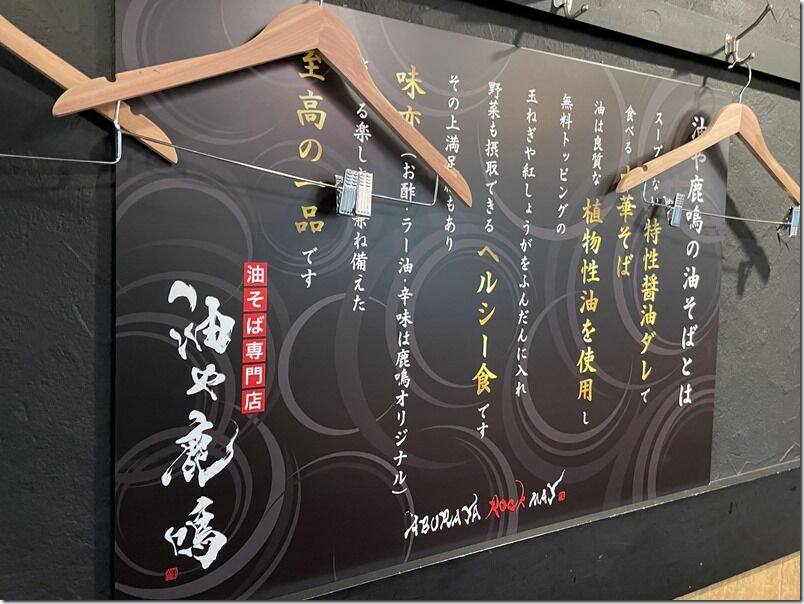 油や鹿鳴の油そばとは
スープ
特性醤油ダレで
食べる
華そば
油は良質な
植物性油を使用し
無料トッピングの
玉ねぎや紅しょうがをふんだんに入れ
野菜も摂取できるヘルシー食です
その上満足
もあり
味変(お酢・ラー油・辛味は鹿鳴オリジナル)
る楽し
兼ね備えた
至高の一品です
油そば専門店
油や鹿鳴
ABURAYA ROCK MAY